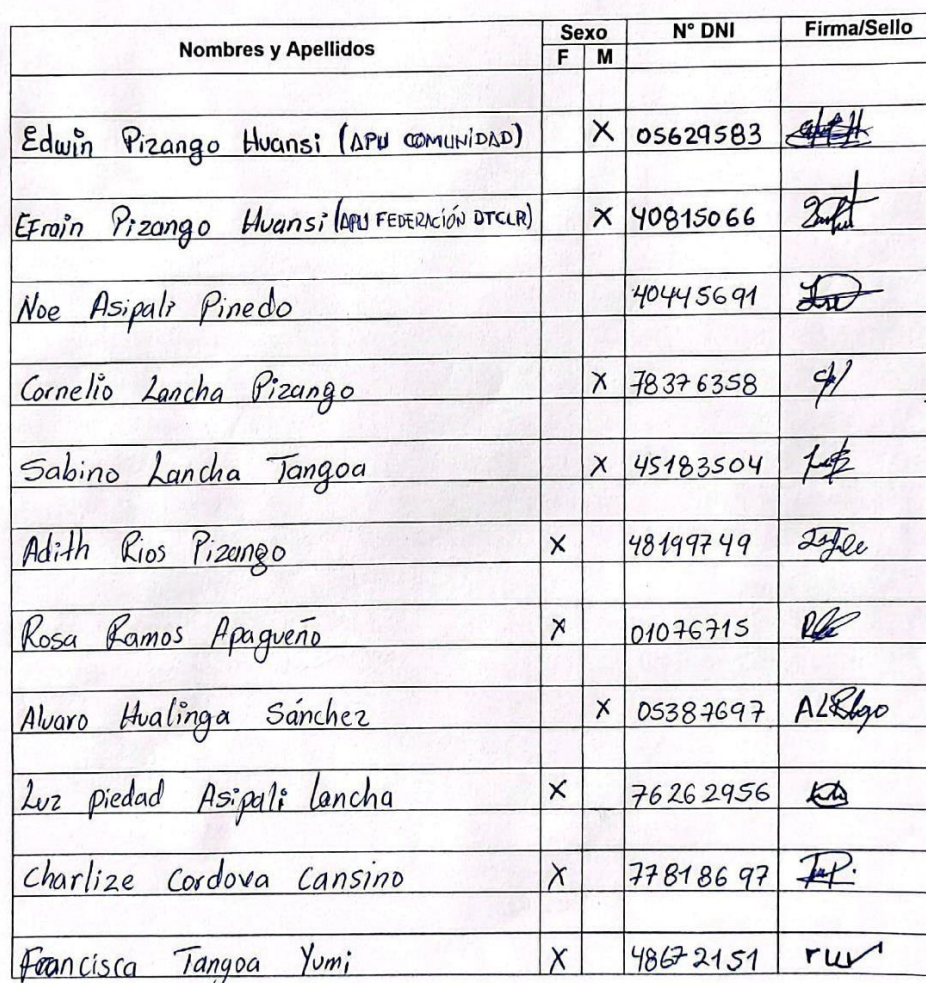 Nombres y Apellidos Sexo N° DNI Firma/Sello
F M
Edwin Pizango Huansi (APU COMUNIDAD) X 05629583
EFrain Pizango Huansi (APU FEDERACIÓN DTCLR) X 40815066
Noe Asipali Pinedo 40445691
Cornelio Lancha Pizango X 78376358
Sabino Lancha Tangoa X 45183504
Adith Rios Pizango X 48199749
Rosa Ramos Apagueño X 01076715
Alvaro Hualinga Sánchez X 05387697
Luz piedad Asipali Lancha X 76262956
Charlize Cordova Cansino X 77818697
Francisca Tangoa Yumi X 48672151